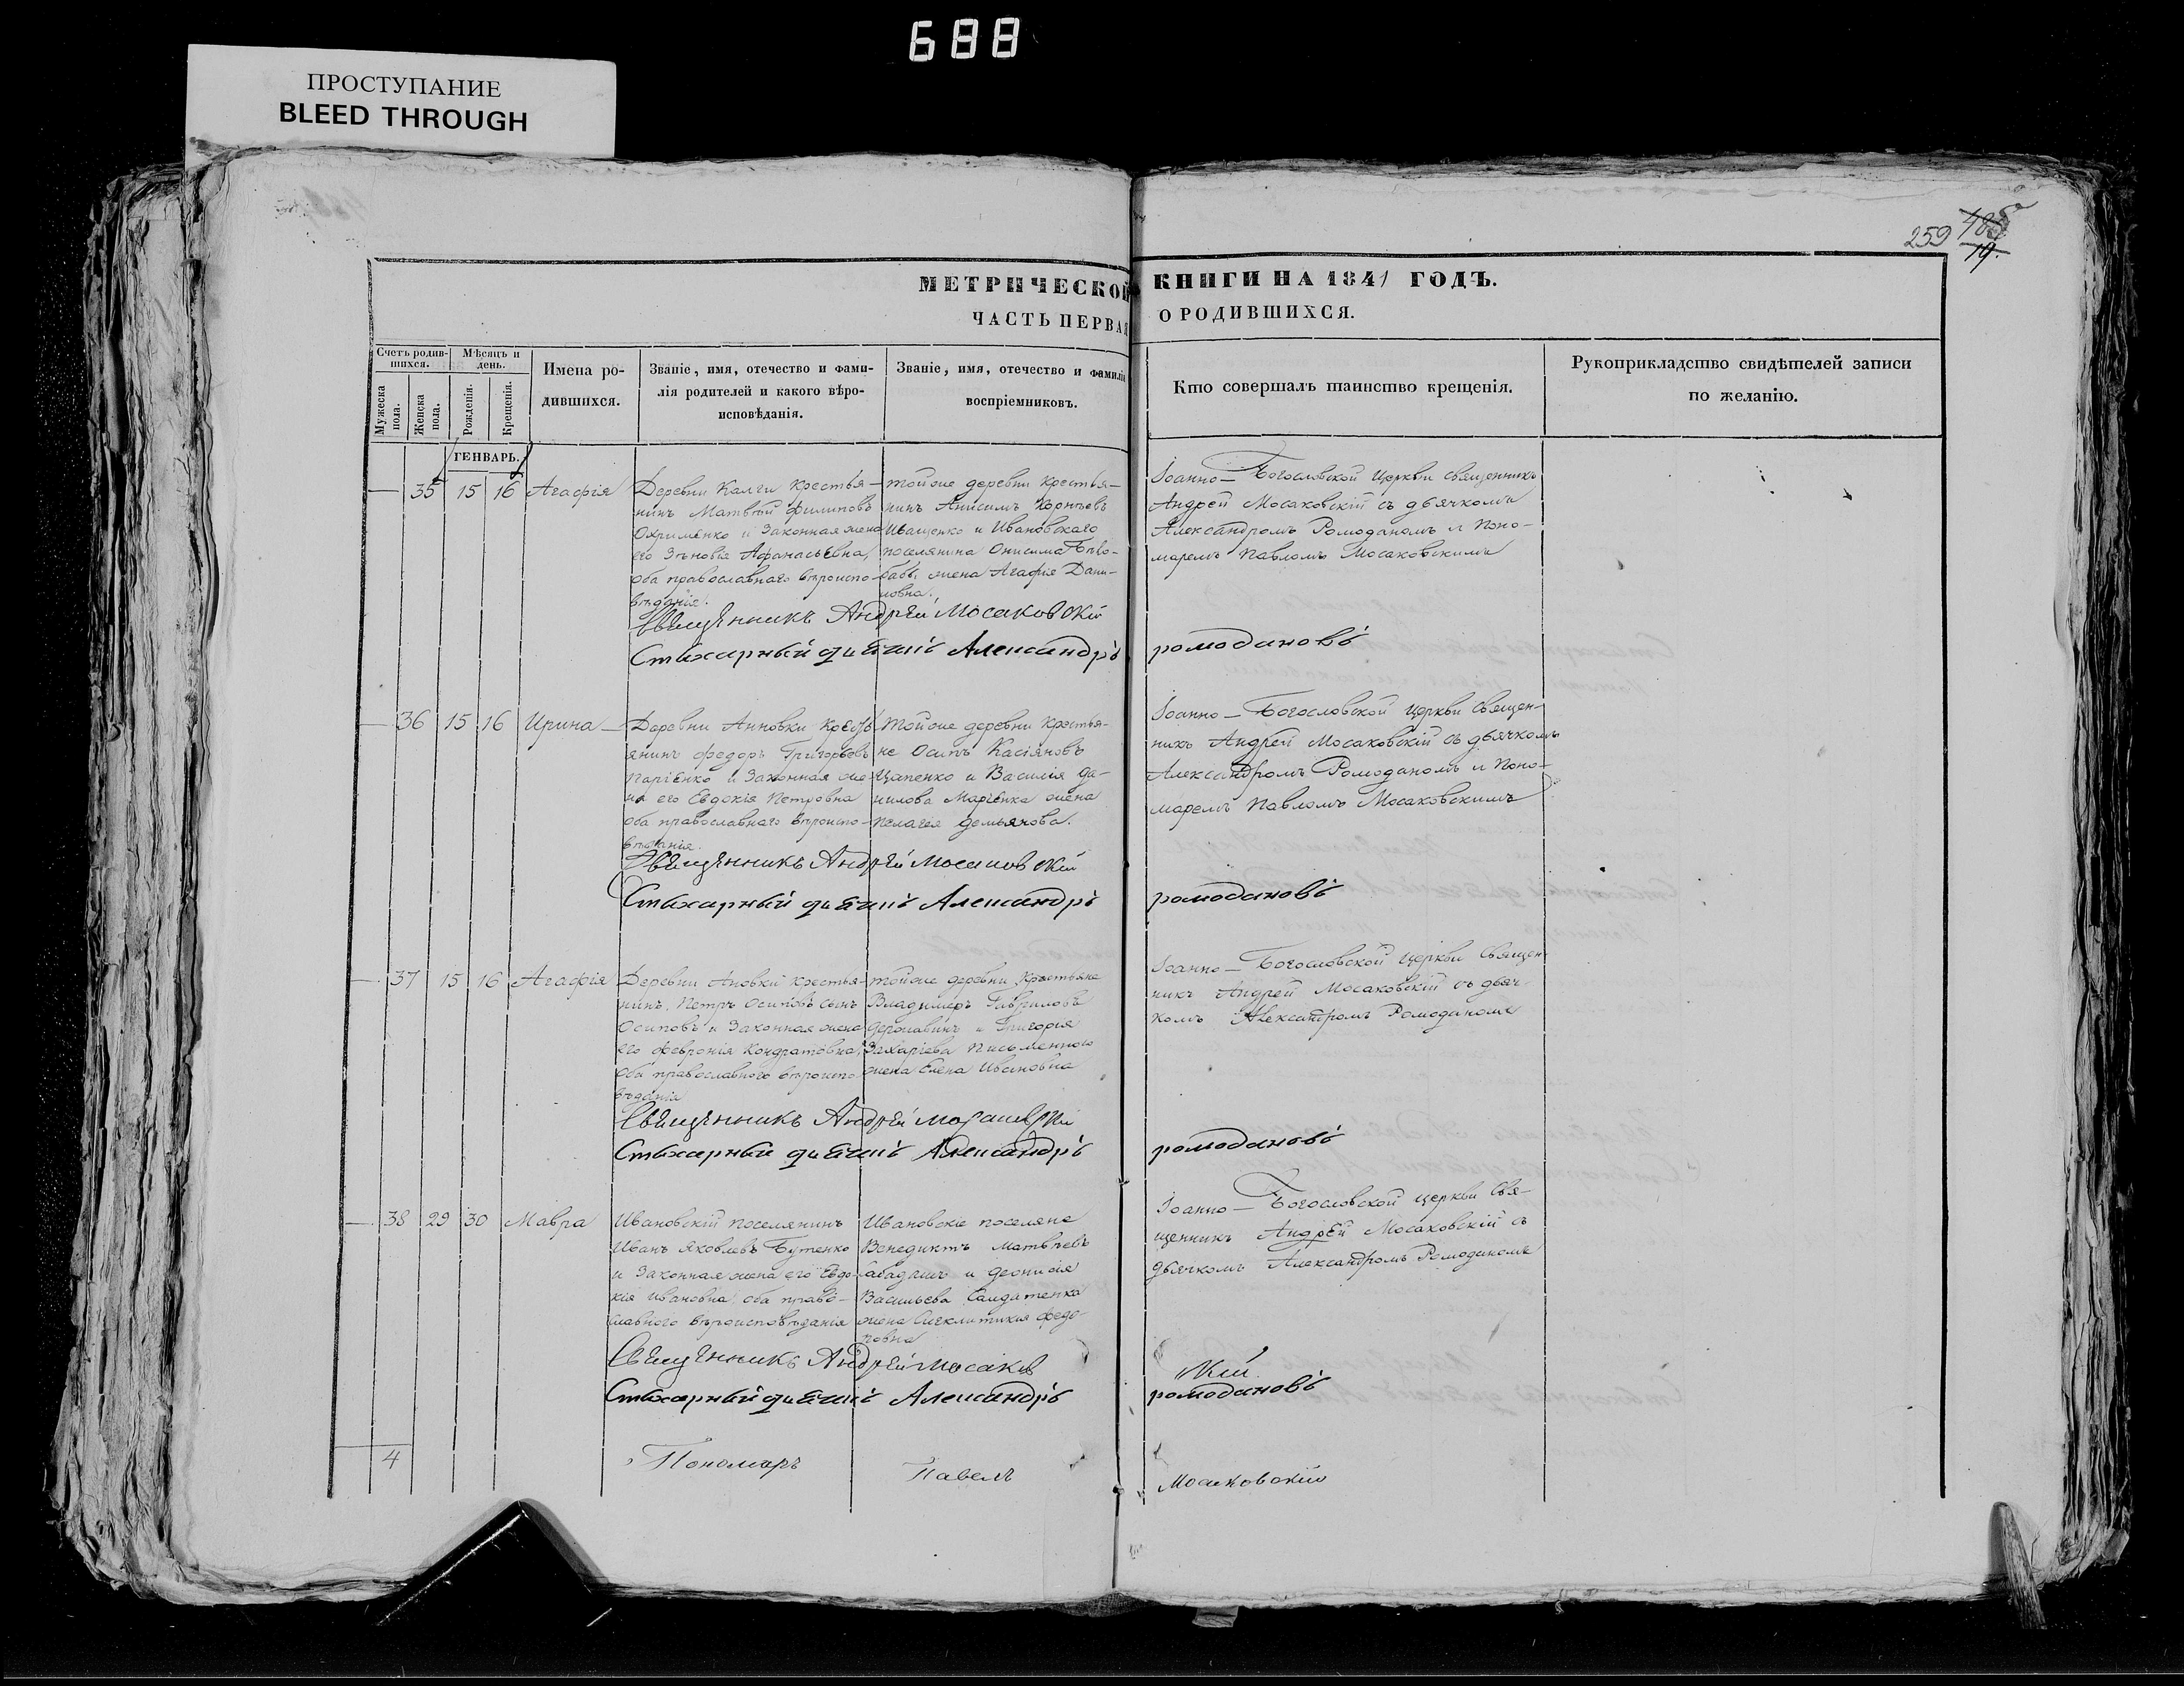 688
ПРОСТУПАНИЕ
BLEED THROUGH
259 485
19.
МЕТРИЧЕСКОЙ КНИГИ НА 1841 ГОДЪ.
ЧАСТЬ ПЕРВАЯ О РОДИВШИХСЯ.
Счетъ родив-
шихся.
Мѣсяцъ и
день.
Мужеска
пола.
Женска
пола.
Рожденія.
Крещенія.
Имена ро-
дившихся.
Званіе, имя, отечество и фами-
лія родителей и какого вѣро-
исповѣданія.
Званіе, имя, отечество и фамилія
воспріемниковъ.
Кто совершалъ таинство крещенія.
Рукоприкладство свидѣтелей записи
по желанію.
ГЕНВАРЬ.
35 15 16 Агафія
Деревни Калги крестья-
нинъ Матвѣй Филиповъ
Охрименко и Законная жена
его Зѣновія Афанасьевна,
оба православнаго вѣроиспо-
вѣданія.
тойже деревни крестья-
нинъ Анисимъ Корнѣевъ
Иващенко и Ивановскаго
поселянина Онисима Бѣло-
бабы жена Агафія Дани-
ловна.
Іоанно-Богословской Церкви священникъ
Андрей Мосаковскій съ дьячкомъ
Александромъ Ромоданомъ и Поно-
маремъ Павломъ Мосаковскимъ
Священникъ Андрей Мосаковскій
Стихарный дьячекъ Александръ ромодановъ
36 15 16 Ирина
Деревни Анновки Крестья-
янинъ Федоръ Григорьевъ
Парієнко и Законная же-
на его Евдокія Петровна
оба православнаго вѣроиспо-
вѣданія.
Тойже деревни крестья-
не Осипъ Касіяновъ
Цапенко и Василія Да-
нилова Марченка жена
Пелагея Демьянова.
Іоанно-Богословской церкви Священ-
никъ Андрей Мосаковскій съ дьячкомъ
Александромъ Ромоданомъ и Поно-
маремъ Павломъ Мосаковскимъ
Священникъ Андрей Мосаковскій
Стихарный дьячекъ Александръ ромодановъ
37 15 16 Агафія
Деревни Ановки крестья-
нинъ Петръ Осиповъ сынъ
Осиповъ и Законная жена
его Февронія Кондратовна,
оба православного вѣроиспо-
вѣданія
тойже деревни крестьяне
Владимеръ Гавриловъ
Державинъ и Григорія
Захаріева Письменного
жена Елена Ивановна
Іоанно-Богословской церкви Священ-
никъ Андрей Мосаковскій съ дьяч-
комъ Александромъ Ромоданомъ
Священникъ Андрей Мосаковскій
Стихарный дьячекъ Александръ ромодановъ
38 29 30 Мавра
Ивановскій поселянинъ
Иванъ Яковлевъ Бутенко
и Законная жена его Евдо-
кія Ивановна оба право-
славного вѣроисповѣданія
Ивановскіе поселяне
Венедиктъ Матвѣевъ
и Деонисія
Васильева Салдатенка
жена Сигклитикия Федо-
ровна
Іоанно-Богословской церкви Свя-
щенникъ Андрей Мосаковскій съ
дьячкомъ Александромъ Ромоданомъ
Священникъ Андрей Мосаковскій
Стихарный дьячекъ Александръ ромодановъ
4
Пономарь Павелъ Мосаковскій